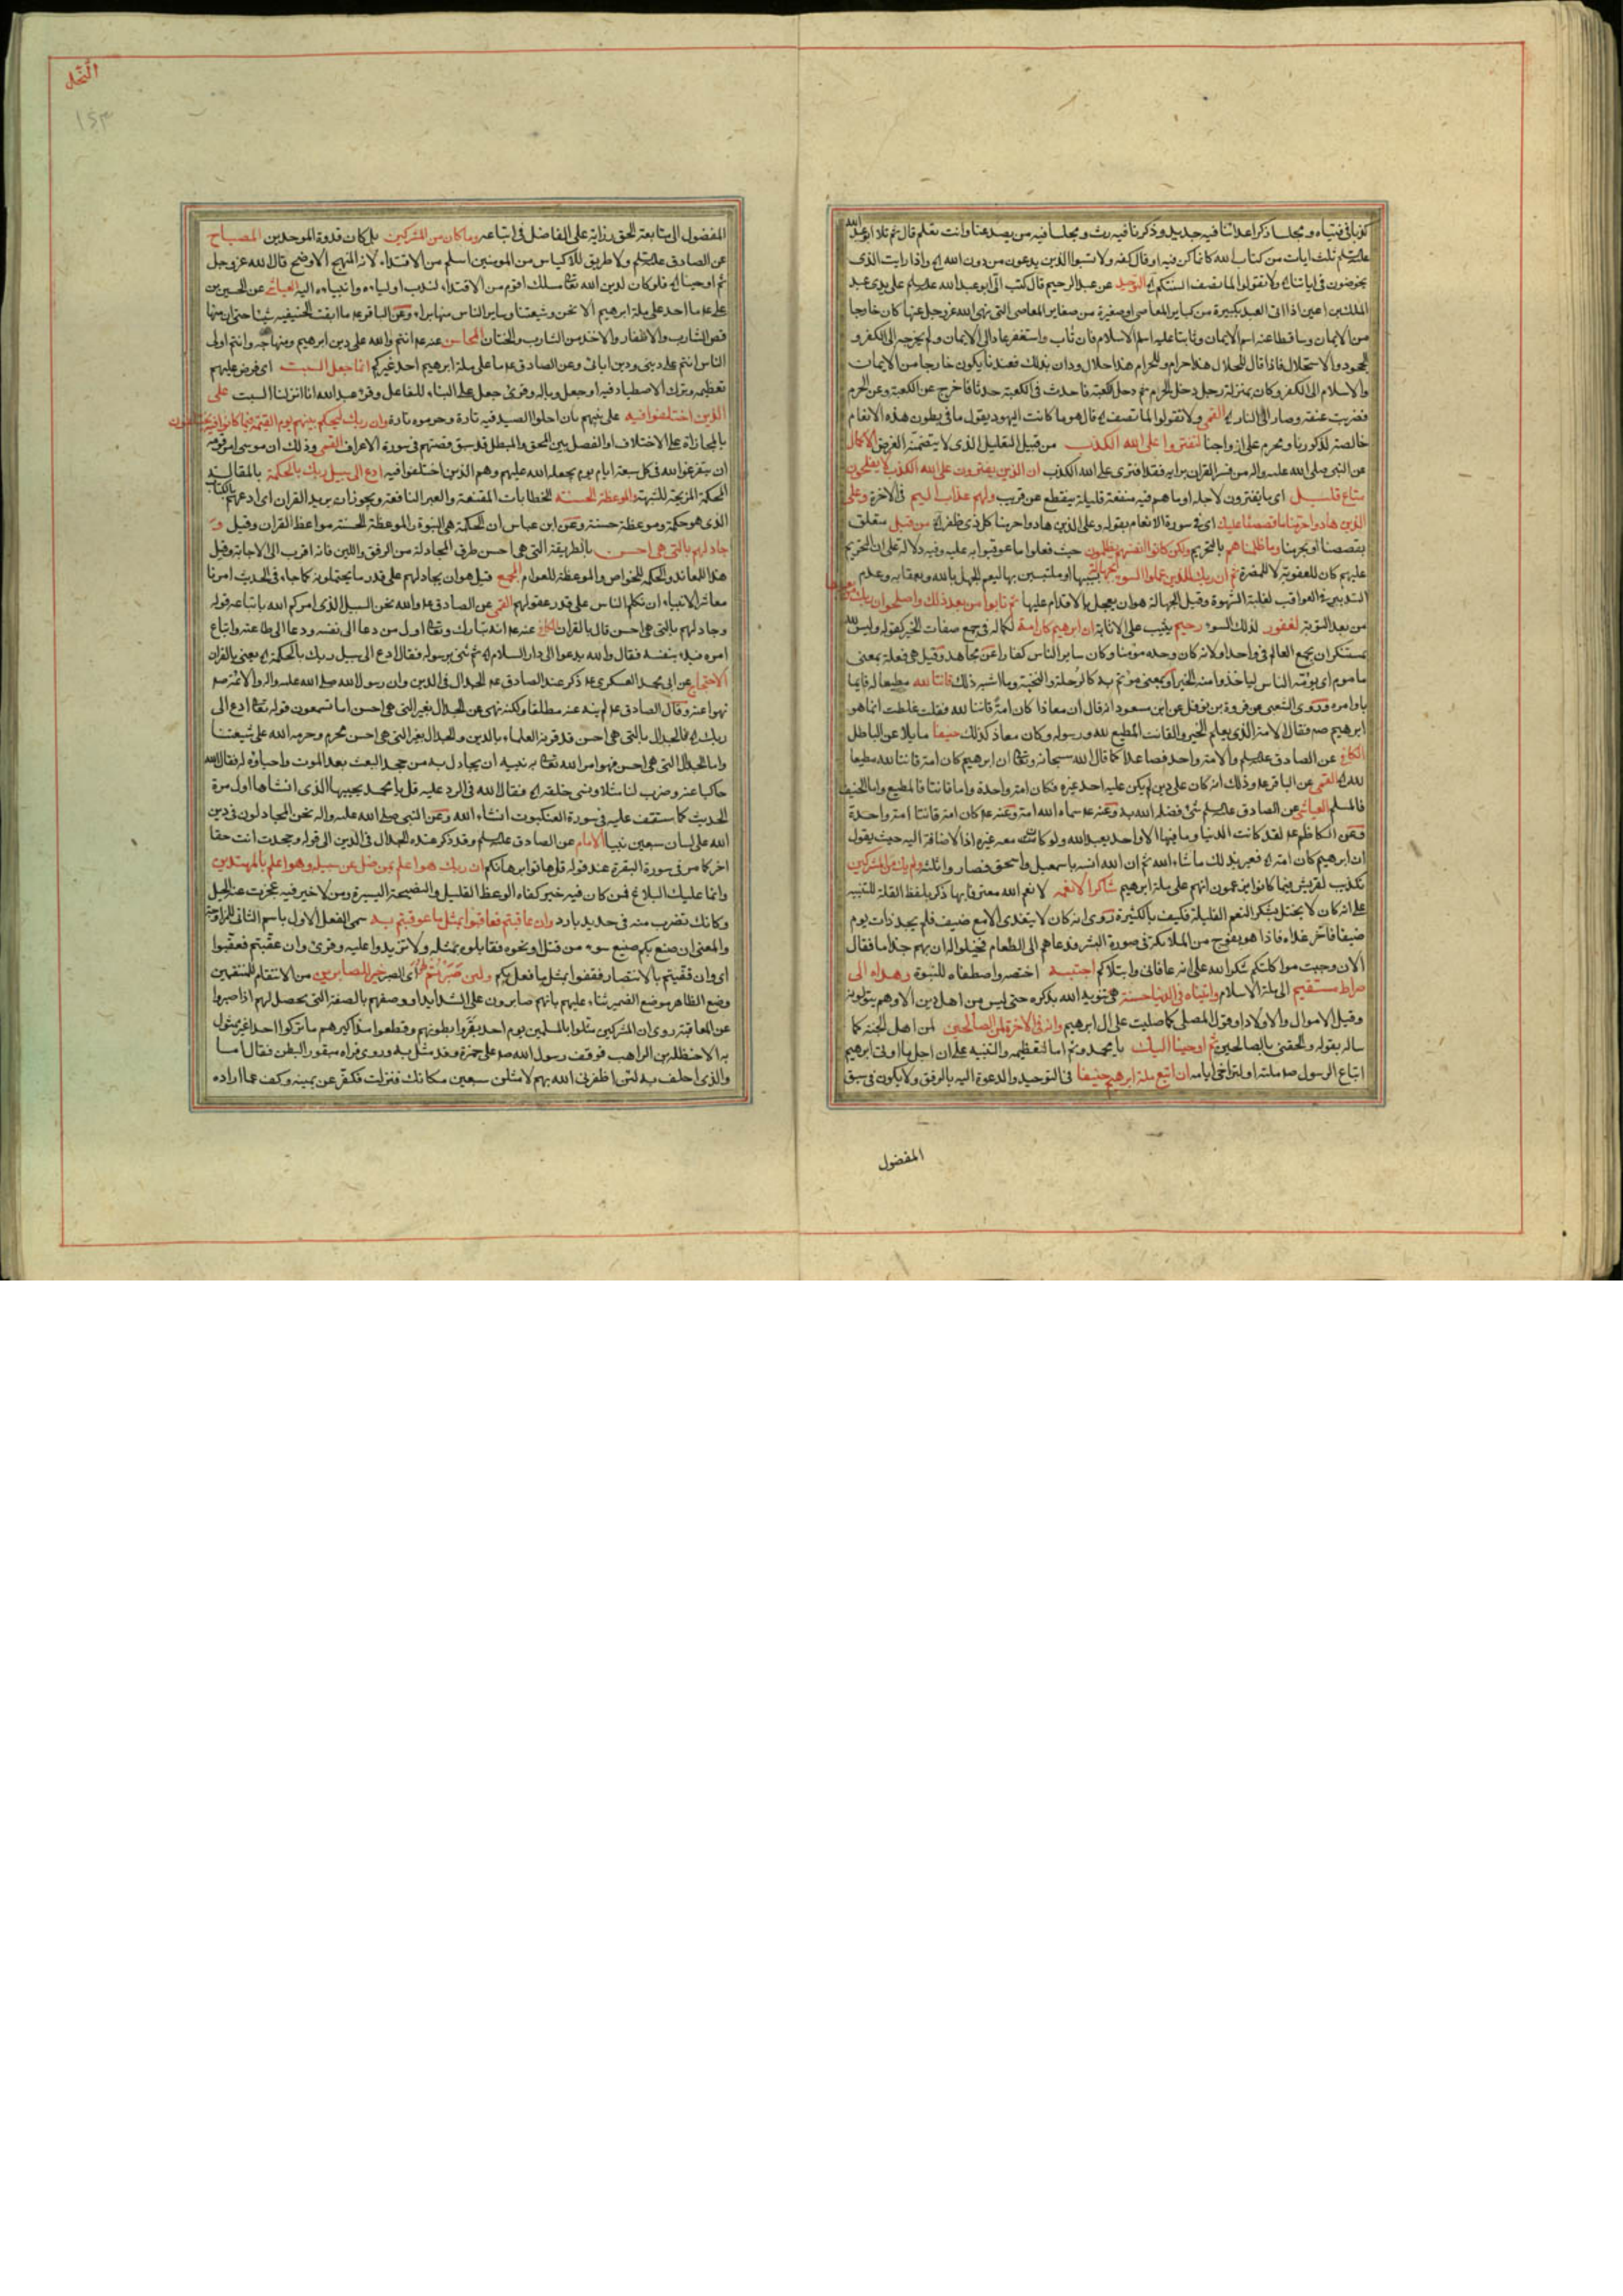 كذبا في فتياه ومجلسا ذكر اعدائنا فيه جديد وذكرنا فيه رث ومجلسا فيه من يصد عنا وانت تعلم قال ثم تلا ابو عبد الله
ثلث ايات من كتاب الله كانما كن في فيه او قال كفه ولا تسبوا الذين يدعون من دون الله واذا رايت الذين
يخوضون في اياتنا ولا تقولوا لما تصف السنتكم التوحيد عن عبد الرحيم قال كتب ابو عبد الله على يدي عبد
الملك بن اعين اذا اتى العبد بكبيرة من كباير المعاصي او صغيرة من صغاير المعاصي التي نهى الله عز وجل عنها كان خارجا
من الايمان وساقطا عنه اسم الايمان وثابتا عليه اسم الاسلام فان تاب واستغفر عاد الى الايمان ولم يخرجه الى الكفر و
الجحود والاستحلال فاذا قال للحلال هذا حرام وللحرام هذا حلال ودان بذلك فعندنا يكون خارجا من الايمان
والاسلام الى الكفر وكان بمنزلة رجل دخل الحرم ثم دخل الكعبة فاحدث في الكعبة حدثا فاخرج عن الكعبة وعن الحرم
فضربت عنقه وصار الى النار القمي ولا تقولوا لما تصف قال هو ما كانت اليهود يقول ما في بطون هذه الانعام
خالصة لذكورنا ومحرم على ازواجنا لتفتروا على الله الكذب من قبيل التعليل الذي لا يتضمن الغرض الاكمال
عن النبي صلى الله عليه واله من فسر القران برايه فقد افترى على الله الكذب ان الذين يفترون على الله الكذب لا يفلحون
متاع قليل اي ما يفترون لاجله او ما هم فيه منفعة قليلة ينقطع عن قريب ولهم عذاب اليم في الاخرة وعلى
الذين هادوا حرمنا ما قصصنا عليك اي في سورة الانعام بقوله وعلى الذين هادوا حرمنا كل ذي ظفر من قبل متعلق
بقصصنا او بحرمنا وما ظلمناهم بالتحريم ولكن كانوا انفسهم يظلمون حيث فعلوا ما عوقبوا به عليه وفيه دلالة على ان التحريم
عليهم كان للعقوبة لا للمضرة ثم ان ربك للذين عملوا السوء بجهالة بسببها او ملتبسين بها ليعم الجهل بالله وبعقابه وعدم
التدبر في العواقب لغلبة الشهوة وقيل الجهالة هو ان يعجل بالاقدام عليها ثم تابوا من بعد ذلك واصلحوا ان ربك من بعدها
من بعد التوبة لغفور لذلك السوء رحيم يثيب على الانابة ان ابرهيم كان امة لكماله في جمع صفات الخير كقوله وليس لله
بمستنكر ان يجمع العالم في واحد او لانه كان وحده مومنا وكان ساير الناس كفارا عن مجاهد وقيل هي فعلة بمعنى
ماموم اي يومه الناس لياخذوا منه الخير او بمعنى موتم به كالرحلة والنخبة وما اشبه ذلك قانتا لله مطيعا له قايما
باوامره وروى الشعبي عن فروة بن نوفل عن ابن مسعود انه قال ان معاذا كان امة قانتا لله فقلت غلطت انما هو
ابرهيم فقال الامة الذي يعلم الخير والقانت المطيع لله ورسوله وكان معاذ كذلك حنيفا مايلا عن الباطل
الكافي عن الصادق والامة واحد فصاعدا كما قال الله سبحانه ان ابرهيم كان امة قانتا لله مطيعا
لله القمي عن الباقر وذلك انه كان على دين لم يكن عليه احد غيره فكان امة واحدة واما قانتا فالمطيع واما الحنيف
فالمسلم العياشي عن الصادق شئ فضله الله به وعنه سماه الله امة وعنه كان امة قانتا امة واحدة
وعن الكاظم لقد كانت الدنيا وما فيها الا واحد يعبد الله ولو كان معه غيره اذا لاضافه اليه حيث يقول
ان ابرهيم كان امة فعبر بذلك ما شاء الله ثم ان الله انسه باسمعيل واسحق فصاروا ثلثة ولم يك من المشركين
تكذيب لقريش فيما كانوا يزعمون انهم على ملة ابرهيم شاكرا لانعمه لانعم الله معترفا بها ذكر بلفظ القلة للتنبيه
على انه كان لا يخل بشكر النعم القليلة فكيف بالكثيرة روى انه كان لا يتغدى الا مع ضيف فلم يجد ذات يوم
ضيفا فاخر غداه فاذا هو بفوج من الملائكة في صورة البشر فدعاهم الى الطعام فخيلوا له ان بهم جذاما فقال
الان وجبت مواكلتكم شكرا لله على انه عافاني وابتلاكم اجتبيه اختصه واصطفاه للنبوة وهداه الى
صراط مستقيم الى ملة الاسلام واتيناه في الدنيا حسنة هي تنويه الله بذكره حتى ليس من اهل دين الا وهم يتولونه
وقيل الاموال والاولاد او قول المصلي كما صليت على ال ابرهيم وانه في الاخرة لمن الصالحين لمن اهل الجنة كما
ساله بقوله والحقني بالصالحين ثم اوحينا اليك يا محمد وثم اما لتعظيمه والتنبيه على ان اجل ما اوتي ابرهيم
اتباع الرسول ملته او لتراخي ايامه ان اتبع ملة ابرهيم حنيفا في التوحيد والدعوة اليه بالرفق ولا يكون في سبق
المفضول
النحل
١٥٣
المفضول الى متابعة الحق رزاية على الفاضل في اتباعه وما كان من المشركين بل كان قدوة الموحدين المصباح
عن الصادق ولا طريق للاكياس من المومنين اسلم من الاقتداء لانه المنهج الاوضح قال الله عز وجل
ثم اوحينا فلو كان لدين الله مسلك اقوم من الاقتداء لندب اولياءه وانبياءه اليه العياشي عن الحسين بن
علي ما احد على ملة ابرهيم الا نحن وشيعتنا وساير الناس منها براء وعن الباقر ما ابقت الحنيفية شيئا حتى ان منها
قص الشارب والاظفار والاخذ من الشارب والختان المحاسن عنه انتم والله على دين ابرهيم ومنهاجه وانتم اولى
الناس انتم على ديني ودين ابائي وعن الصادق ما على ملة ابرهيم احد غيركم انما جعل السبت اي فرض عليهم
تعظيمه وترك الاصطياد فيه او جعل وباله وقرئ جعل على البناء للفاعل وقرء عبد الله انا انزلنا السبت على
الذين اختلفوا فيه على نبيهم بان احلوا الصيد فيه تارة وحرموه تارة وان ربك ليحكم بينهم يوم القيمة فيما كانوا فيه يختلفون
بالمجازاة على الاختلاف او الفصل بين المحق والمبطل قد سبق قصتهم في سورة الاعراف القمي وذلك ان موسى امر قومه
ان يتفرغوا لله في كل سبعة ايام يوم يجعله الله عليهم وهم الذين اختلفوا فيه ادع الى سبيل ربك بالحكمة بالمقالة
المحكمة المزيحة للشبهة والموعظة الحسنة الخطابات المقنعة والعبر النافعة ويجوز ان يريد القران اي ادعهم بالكتاب
الذي هو حكمة وموعظة حسنة وعن ابن عباس ان الحكمة هي النبوة والموعظة الحسنة مواعظ القران وقيل و
جادلهم بالتي هي احسن بالطريقة التي هي احسن طرق المجادلة من الرفق واللين فانه اقرب الى الاجابة وقيل
هذا للمعاند والحكمة للخواص والموعظة للعوام المجمع قيل هو ان يجادلهم على قدر ما يحتملونه كما جاء في الحديث امرنا
معاشر الانبياء ان نكلم الناس على قدر عقولهم القمي عن الصادق والله نحن السبيل الذي امركم الله باتباعه قوله
وجادلهم بالتي هي احسن قال بالقران الكافي عنه انه تبارك وتعالى اول من دعا الى نفسه ودعا الى طاعته واتباع
امره فبدء بنفسه فقال والله يدعوا الى دار السلام ثم ثنى برسوله فقال ادع الى سبيل ربك بالحكمة يعني بالقران
الاحتجاج عن ابي محمد العسكري ذكر عند الصادق الجدال في الدين وان رسول الله صلى الله عليه واله والائمة
نهوا عنه وقال الصادق لم ينه عنه مطلقا ولكنه نهى عن الجدال بغير التي هي احسن اما تسمعون قوله ادع الى
ربك فالجدال بالتي هي احسن قد قرنه العلماء بالدين والجدال بغير التي هي احسن محرم وحرمه الله على شيعتنا
واما الجدال التي هي احسن فهو امر الله به نبيه ان يجادل به من جحد البعث بعد الموت واحياؤه له فقال الله
حاكيا عنه وضرب لنا مثلا ونسي خلقه فقال الله في الرد عليه قل يا محمد يحييها الذي انشاها اول مرة
الحديث كما ستقف عليه في سورة العنكبوت انشاء الله وعن النبي صلى الله عليه واله نحن المجادلون في دين
الله على لسان سبعين نبيا الامام عن الصادق وقد ذكر عنده الجدال في الدين الى قوله وجحدت انت حقا
اخر كما مر في سورة البقرة عند قوله قل هاتوا برهانكم ان ربك هو اعلم بمن ضل عن سبيله وهو اعلم بالمهتدين
وانما عليك البلاغ فمن كان فيه خير كفاه الوعظ القليل والنصيحة اليسيرة ومن لا خير فيه عجزت عنه الحيل
وكانك تضرب منه في حديد بارد وان عاقبتم فعاقبوا بمثل ما عوقبتم به سمى الفعل الاول باسم الثاني للمزاوجة
والمعنى ان صنع بكم صنيع سوء من قتل او نحوه فقابلوه بمثله ولا تزيدوا عليه وقرئ وان عقبتم فعقبوا
اي وان قفيتم بالانتصار فقفوا بمثل ما فعل بكم ولئن صبرتم لهو اي الصبر خير للصابرين من الانتقام للمنتقمين
وضع الظاهر موضع الضمير ثناء عليهم بانهم صابرون على الشدايد او وصفهم بالصفة التي يحصل لهم اذا صبروا
عن المعاقبة روى ان المشركين مثلوا بالمسلمين يوم احد بقروا بطونهم وقطعوا مذاكيرهم ما تركوا احدا غير ممثول
به الا حنظلة بن الراهب فوقف رسول الله على حمزة وقد مثل به وروى فراه مبقور البطن فقال اما
والذي احلف به لئن اظفرني الله بهم لامثلن سبعين مكانك فنزلت فكفر عن يمينه وكف عما اراده